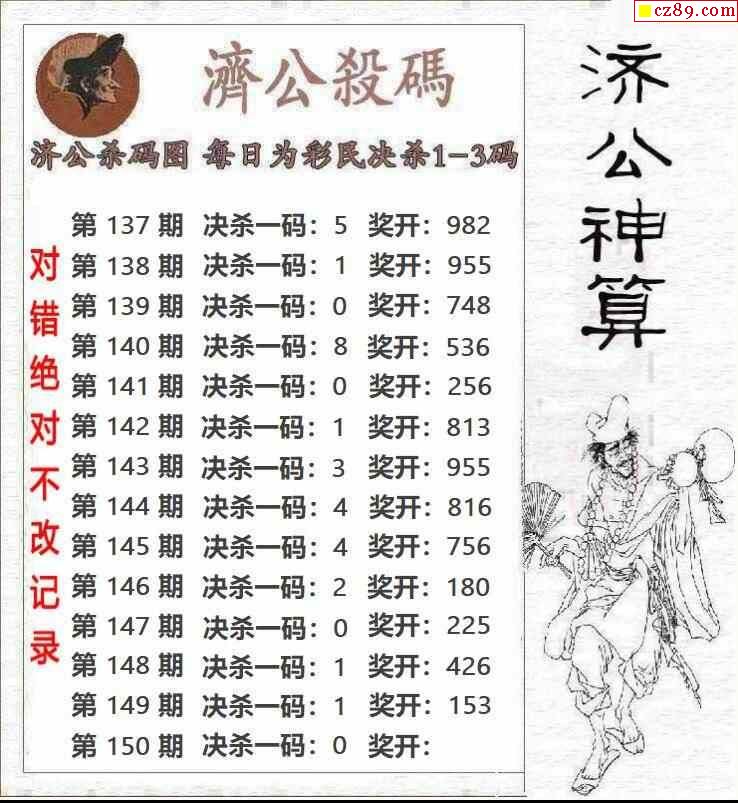 cz89.com
濟公殺碼
济公杀码图 每日为彩民决杀1-3码
第 137 期 决杀一码：5 奖开：982
第 138 期 决杀一码：1 奖开：955
第 139 期 决杀一码：0 奖开：748
第 140 期 决杀一码：8 奖开：536
第 141 期 决杀一码：0 奖开：256
第 142 期 决杀一码：1 奖开：813
第 143 期 决杀一码：3 奖开：955
第 144 期 决杀一码：4 奖开：816
第 145 期 决杀一码：4 奖开：756
第 146 期 决杀一码：2 奖开：180
第 147 期 决杀一码：0 奖开：225
第 148 期 决杀一码：1 奖开：426
第 149 期 决杀一码：1 奖开：153
第 150 期 决杀一码：0 奖开：
对错绝对不改记录
济公神算